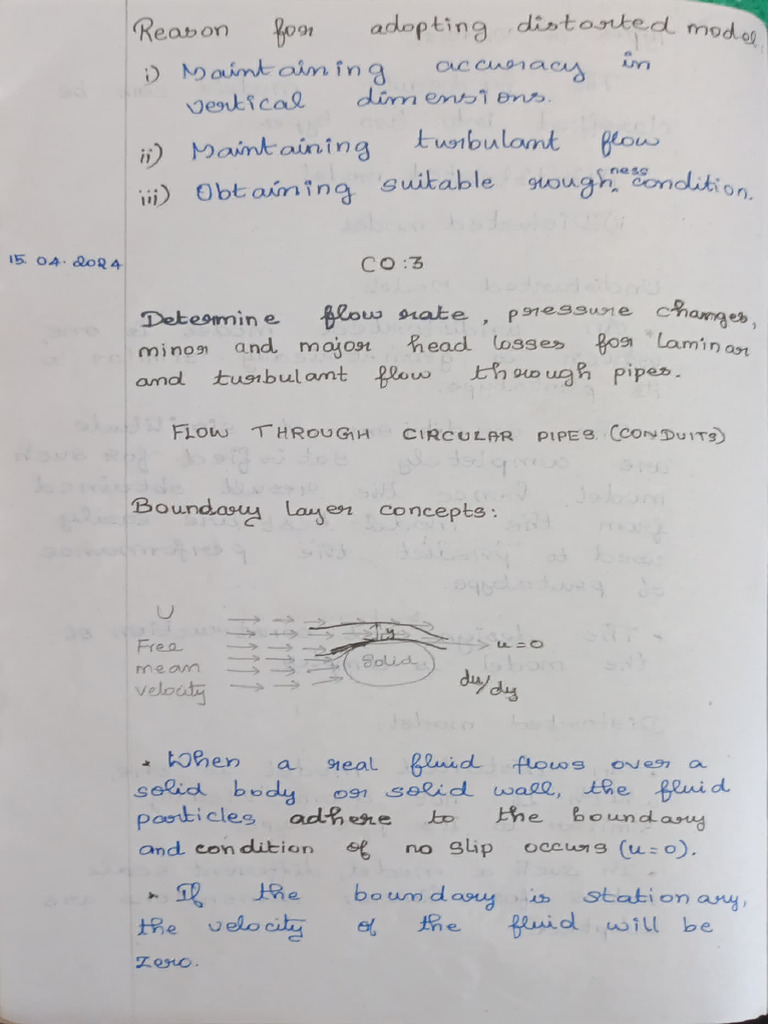 Reason for adopting distorted model.
i) Maintaining accuracy in
vertical dimensions.
ii) Maintaining turbulant flow
iii) Obtaining suitable roughness condition.
15.04.2024 CO:3
Determine flow rate, pressure changes,
minor and major head losses for laminar
and turbulant flow through pipes.
FLOW THROUGH CIRCULAR PIPES (CONDUITS)
Boundary layer concepts:
U
Free
mean
velocity
y
solid
u=0
du/dy
• When a real fluid flows over a
solid body or solid wall, the fluid
particles adhere to the boundary
and condition of no slip occurs (u=0).
• If the boundary is stationary,
the velocity of the fluid will be
zero.